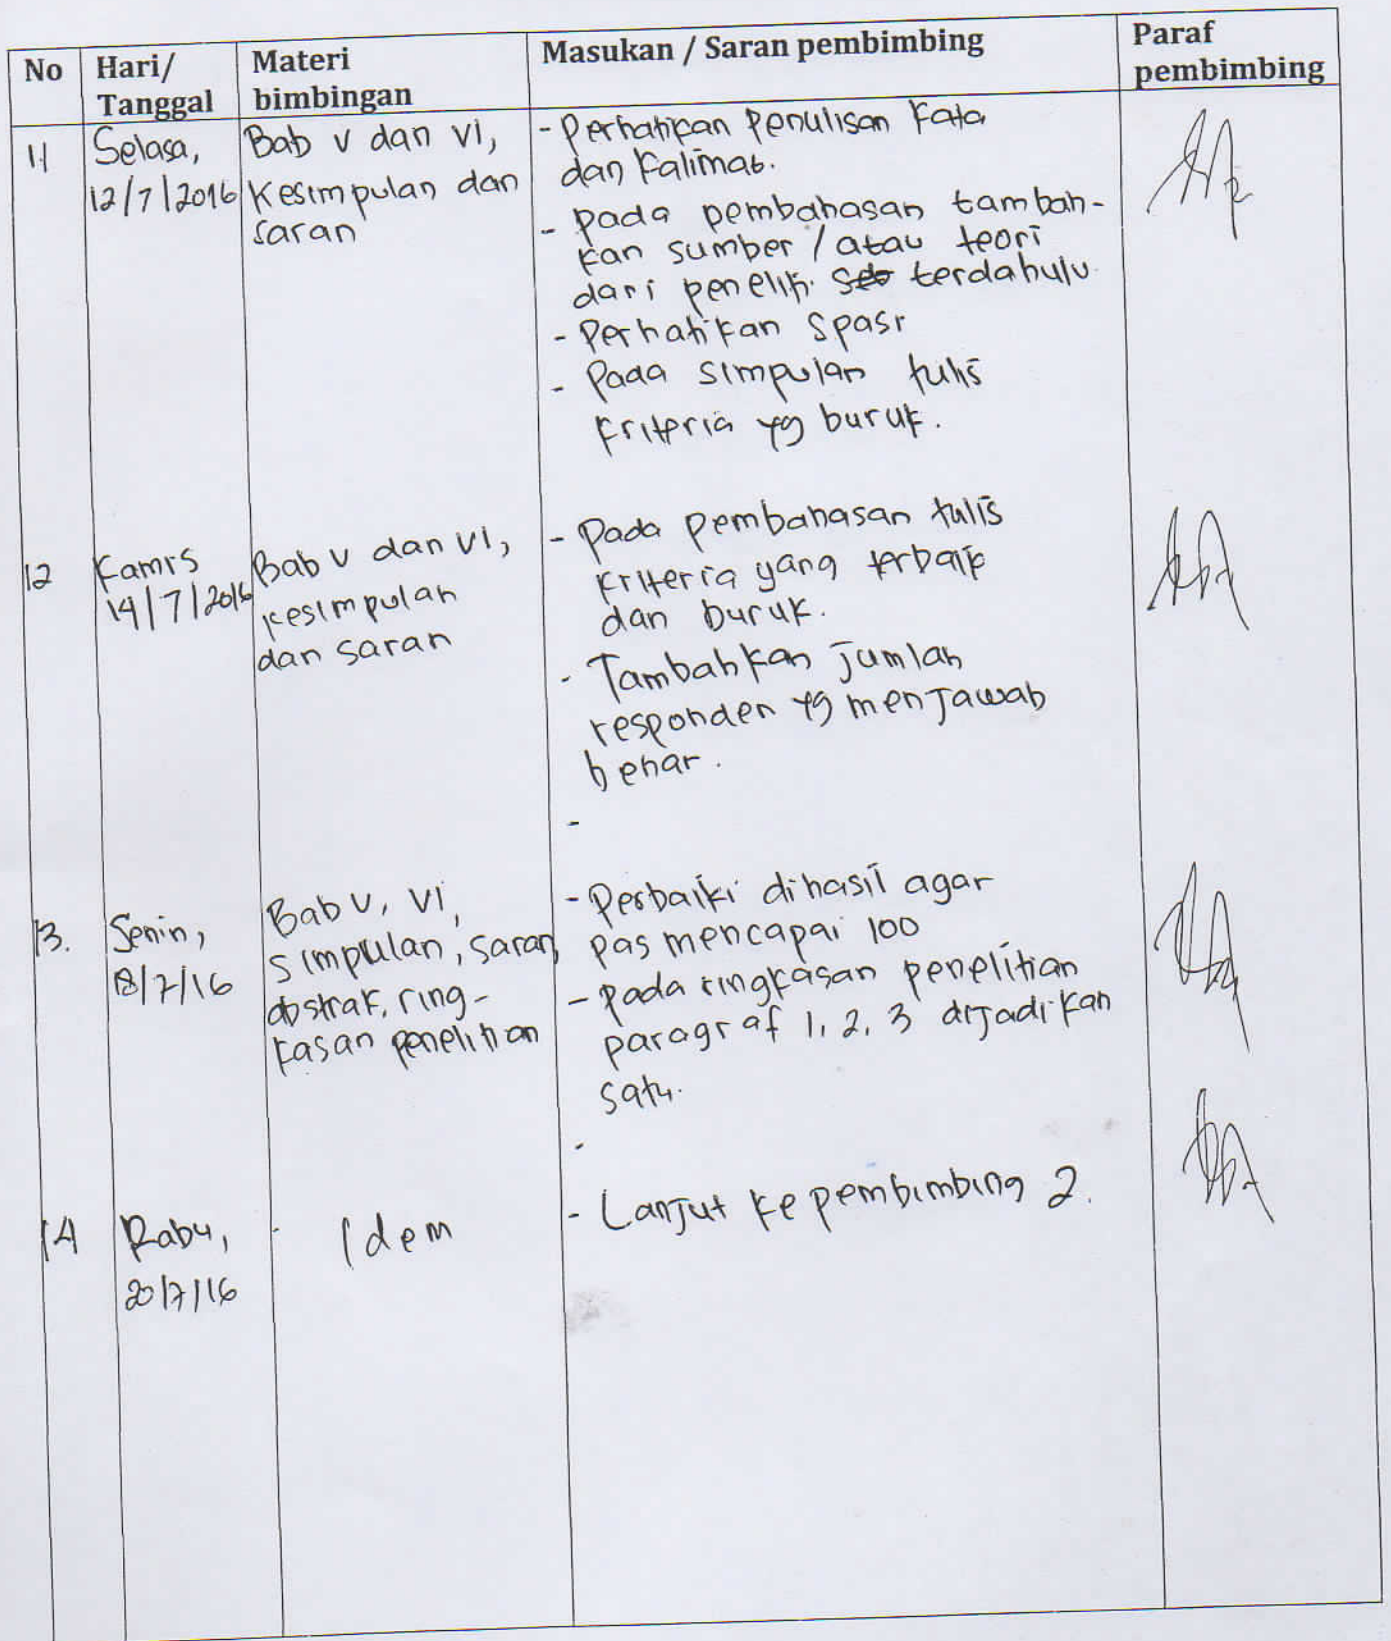 No Hari/ Tanggal Materi bimbingan Masukan / Saran pembimbing Paraf pembimbing
11 Selasa, 12/7/2016
Bab V dan VI,
Kesimpulan dan
saran
- Perhatikan Penulisan Kata
dan Kalimat.
- pada pembahasan tambah-
kan sumber / atau teori
dari peneliti terdahulu
- Perhatikan Spasi
- Pada simpulan tulis
kriteria yg buruk.
12 Kamis 14/7/2016
Bab V dan VI,
kesimpulan
dan saran
- Pada pembahasan tulis
kriteria yang terbaik
dan buruk.
- Tambahkan jumlah
responden yg menjawab
benar.
-
13. Senin, 18/7/16
Bab V, VI,
simpulan, saran,
abstrak, ring-
kasan penelitian
- Perbaiki dihasil agar
pas mencapai 100
- pada ringkasan penelitian
paragraf 1, 2, 3 dijadikan
satu.
-
14 Rabu, 20/7/16
Idem
- Lanjut ke pembimbing 2.